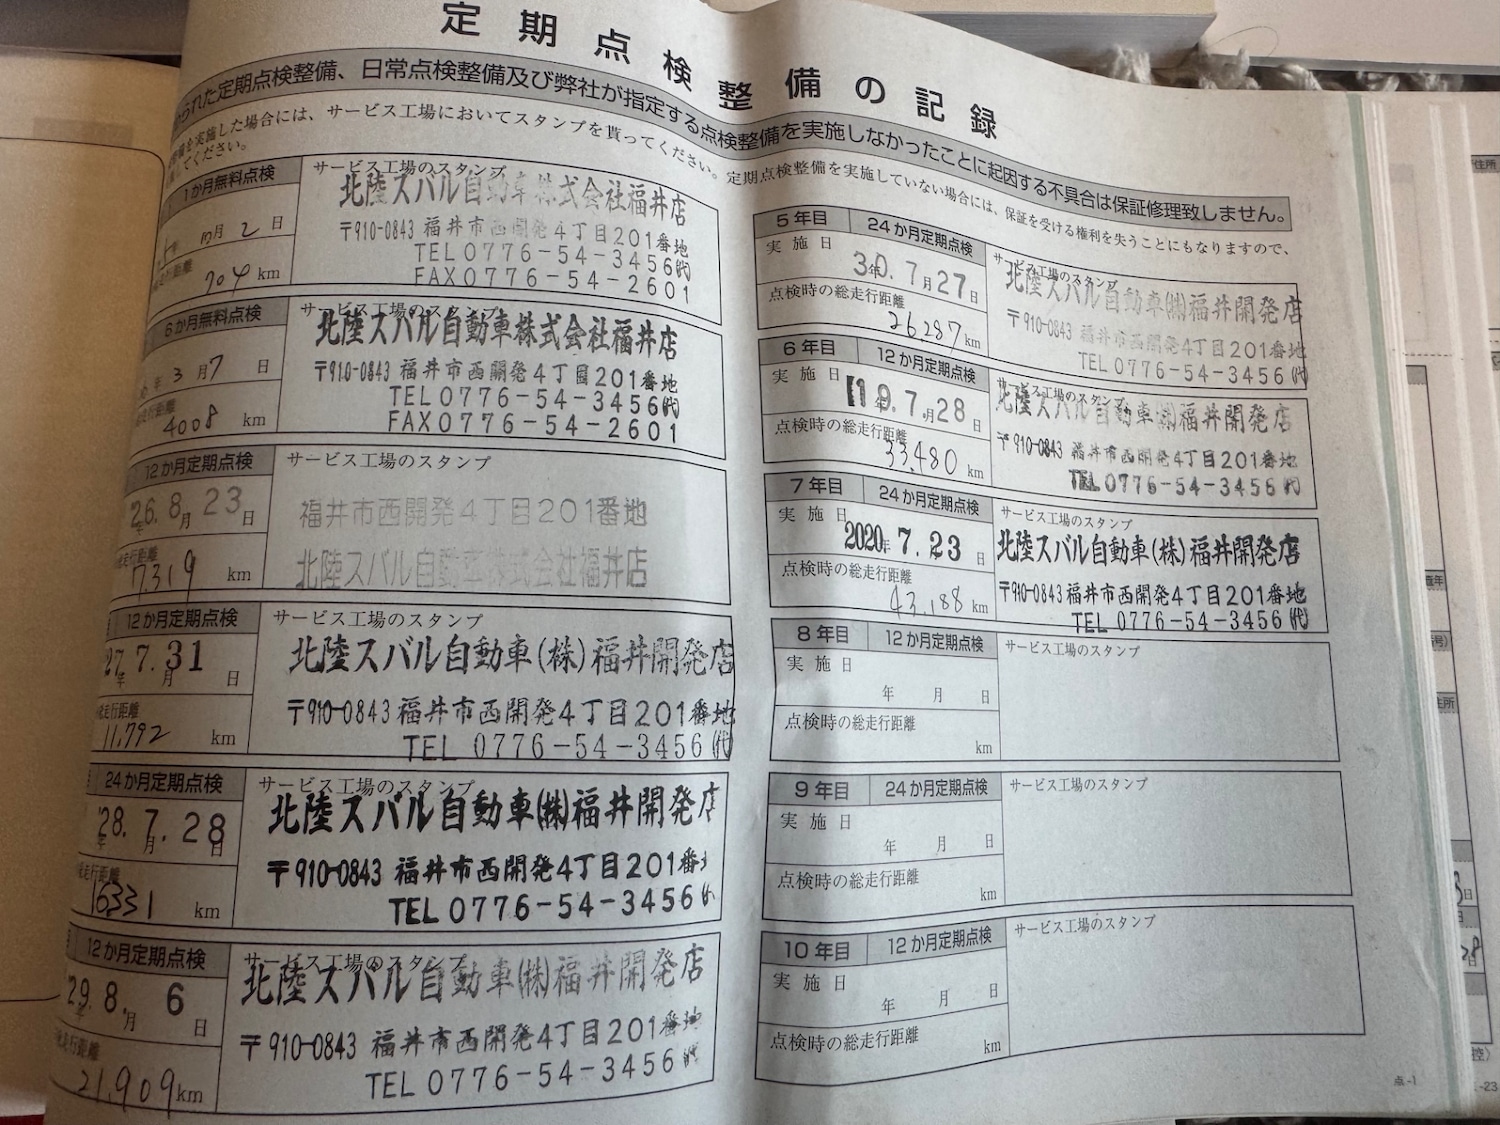 定期点検整備の記録
られた定期点検整備、日常点検整備及び弊社が指定する点検整備を実施しなかったことに起因する不具合は保証修理致しません。
整備を実施した場合には、サービス工場においてスタンプを貰ってください。定期点検整備を実施していない場合には、保証を受ける権利を失うことにもなりますので、
てください。
1か月無料点検
サービス工場のスタンプ
月 2 日
704 km
北陸スバル自動車株式会社福井店
〒910-0843 福井市西開発4丁目201番地
TEL0776-54-3456㈹
FAX0776-54-2601
6か月無料点検
サービス工場のスタンプ
年 3 月 7 日
走行距離
4008 km
北陸スバル自動車株式会社福井店
〒910-0843 福井市西開発4丁目201番地
TEL0776-54-3456㈹
FAX0776-54-2601
12か月定期点検
サービス工場のスタンプ
26.8月23日
走行距離
7319 km
福井市西開発4丁目201番地
北陸スバル自動車株式会社福井店
12か月定期点検
サービス工場のスタンプ
27年7.月31日
走行距離
11,792 km
北陸スバル自動車(株)福井開発店
〒910-0843 福井市西開発4丁目201番地
TEL 0776-54-3456㈹
24か月定期点検
サービス工場のスタンプ
28.年7.月28日
走行距離
16331 km
北陸スバル自動車㈱福井開発店
〒910-0843 福井市西開発4丁目201番
TEL0776-54-3456
12か月定期点検
サービス工場のスタンプ
29.年8.月6日
走行距離
21,909km
北陸スバル自動車㈱福井開発店
〒910-0843 福井市西開発4丁目201番地
TEL0776-54-3456㈹
5年目 24か月定期点検
サービス工場のスタンプ
実施日
30.年7月27日
点検時の総走行距離
26,287km
北陸スバル自動車㈱福井開発店
〒910-0843 福井市西開発4丁目201番地
TEL0776-54-3456㈹
6年目 12か月定期点検
サービス工場のスタンプ
実施日
年.7.月28日
点検時の総走行距離
33,480 km
北陸スバル自動車㈱福井開発店
〒910-0843 福井市西開発4丁目201番地
TEL0776-54-3456㈹
7年目 24か月定期点検
サービス工場のスタンプ
実施日
2020年7.23日
点検時の総走行距離
43,188 km
北陸スバル自動車(株)福井開発店
〒910-0843福井市西開発4丁目201番地
TEL 0776-54-3456㈹
8年目 12か月定期点検
サービス工場のスタンプ
実施日
年 月 日
点検時の総走行距離
km
9年目 24か月定期点検
サービス工場のスタンプ
実施日
年 月 日
点検時の総走行距離
km
10年目 12か月定期点検
サービス工場のスタンプ
実施日
年 月 日
点検時の総走行距離
km
点-1
住所